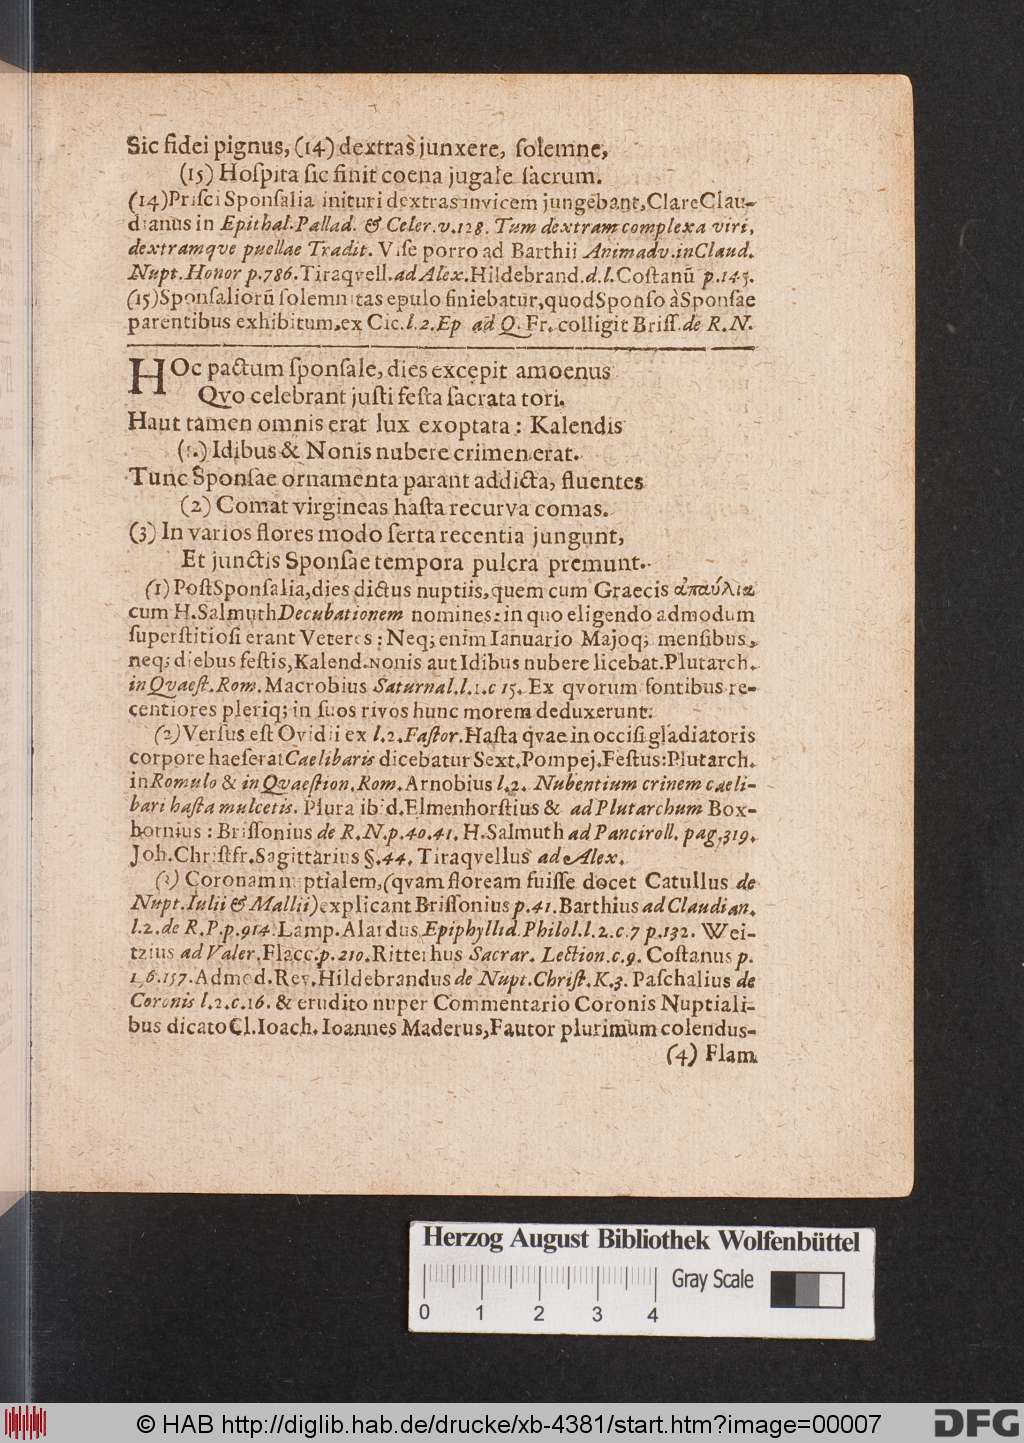 Sic fidei pignus, (14) dextras junxere, ſolemne,
(15) Hoſpita ſic finit coena jugale ſacrum.
(14) Priſci Sponſalia inituri dextras invicem jungebant, Clare Clau-
dianus in Epithal. Pallad. & Celer. v. 128. Tum dextram complexa viri,
dextramqve puellae Tradit. Viſe porro ad Barthii Animadv. in Claud.
Nupt. Honor p. 786. Tiraqvell. ad Alex. Hildebrand. d. l. Coſtanũ p. 145.
(15) Sponſaliorũ ſolemnitas epulo finiebatur, quod Sponſo à Sponſae
parentibus exhibitum, ex Cic. l. 2. Ep ad Q. Fr. colligit Briſſ. de R. N.
HOc pactum ſponſale, dies excepit amoenus
Qvo celebrant juſti feſta ſacrata tori.
Haut tamen omnis erat lux exoptata: Kalendis
(1.) Idibus & Nonis nubere crimen erat.
Tunc Sponſae ornamenta parant addicta, fluentes
(2) Comat virgineas haſta recurva comas.
(3) In varios flores modo ſerta recentia jungunt,
Et junctis Sponſae tempora pulcra premunt.
(1) Poſt Sponſalia, dies dictus nuptiis, quem cum Graecis ἀπαύλια
cum H. Salmuth Decubationem nomines: in quo eligendo admodum
ſuperſtitioſi erant Veteres: Neq; enim Ianuario Majoq; menſibus,
neq; diebus feſtis, Kalend. Nonis aut Idibus nubere licebat. Plutarch.
in Qvaeſt. Rom. Macrobius Saturnal. l. 1. c 15. Ex qvorum fontibus re-
centiores pleriq; in ſuos rivos hunc morem deduxerunt.
(2) Verſus eſt Ovidii ex l. 2. Faſtor. Haſta qvae in occiſi gladiatoris
corpore haeſerat Caelibaris dicebatur Sext. Pompej. Feſtus: Plutarch.
in Romulo & in Qvaeſtion. Rom. Arnobius l. 2. Nubentium crinem caeli-
bari haſta mulcetis. Plura ibid. Elmenhorſtius & ad Plutarchum Box-
hornius: Briſſonius de R. N. p. 40. 41. H. Salmuth ad Panciroll. pag. 319.
Joh. Chriſtfr. Sagittarius §. 44. Tiraqvellus ad Alex.
(3) Coronam nuptialem, (qvam floream fuiſſe docet Catullus de
Nupt. Iulii & Mallii) explicant Briſſonius p. 41. Barthius ad Claudian.
l. 2. de R. P. p. 914. Lamp. Alardus Epiphyllid. Philol. l. 2. c. 7 p. 132. Wei-
tzius ad Valer. Flacc. p. 210. Ritterhus Sacrar. Lection. c. 9. Coſtanus p.
156. 157. Admod. Rev. Hildebrandus de Nupt. Chriſt. K. 3. Paſchalius de
Coronis l. 2. c. 16. & erudito nuper Commentario Coronis Nuptiali-
bus dicato Cl. Ioach. Ioannes Maderus, Fautor plurimum colendus-
(4) Flam
Herzog August Bibliothek Wolfenbüttel
Gray Scale
0 1 2 3 4
© HAB http://diglib.hab.de/drucke/xb-4381/start.htm?image=00007
DFG